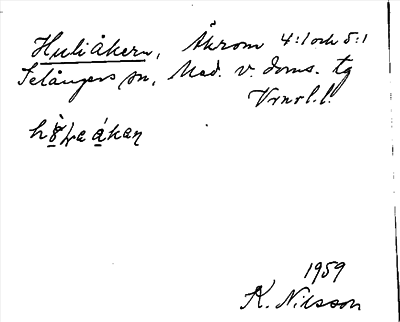 Huliåkern, Åkrom 4:1 och 5:1
Selångers sn, Med. v. doms. tg
Vrnsl.l.
hò̱ɫaá̱kaɳ
1959
K. Nilsson